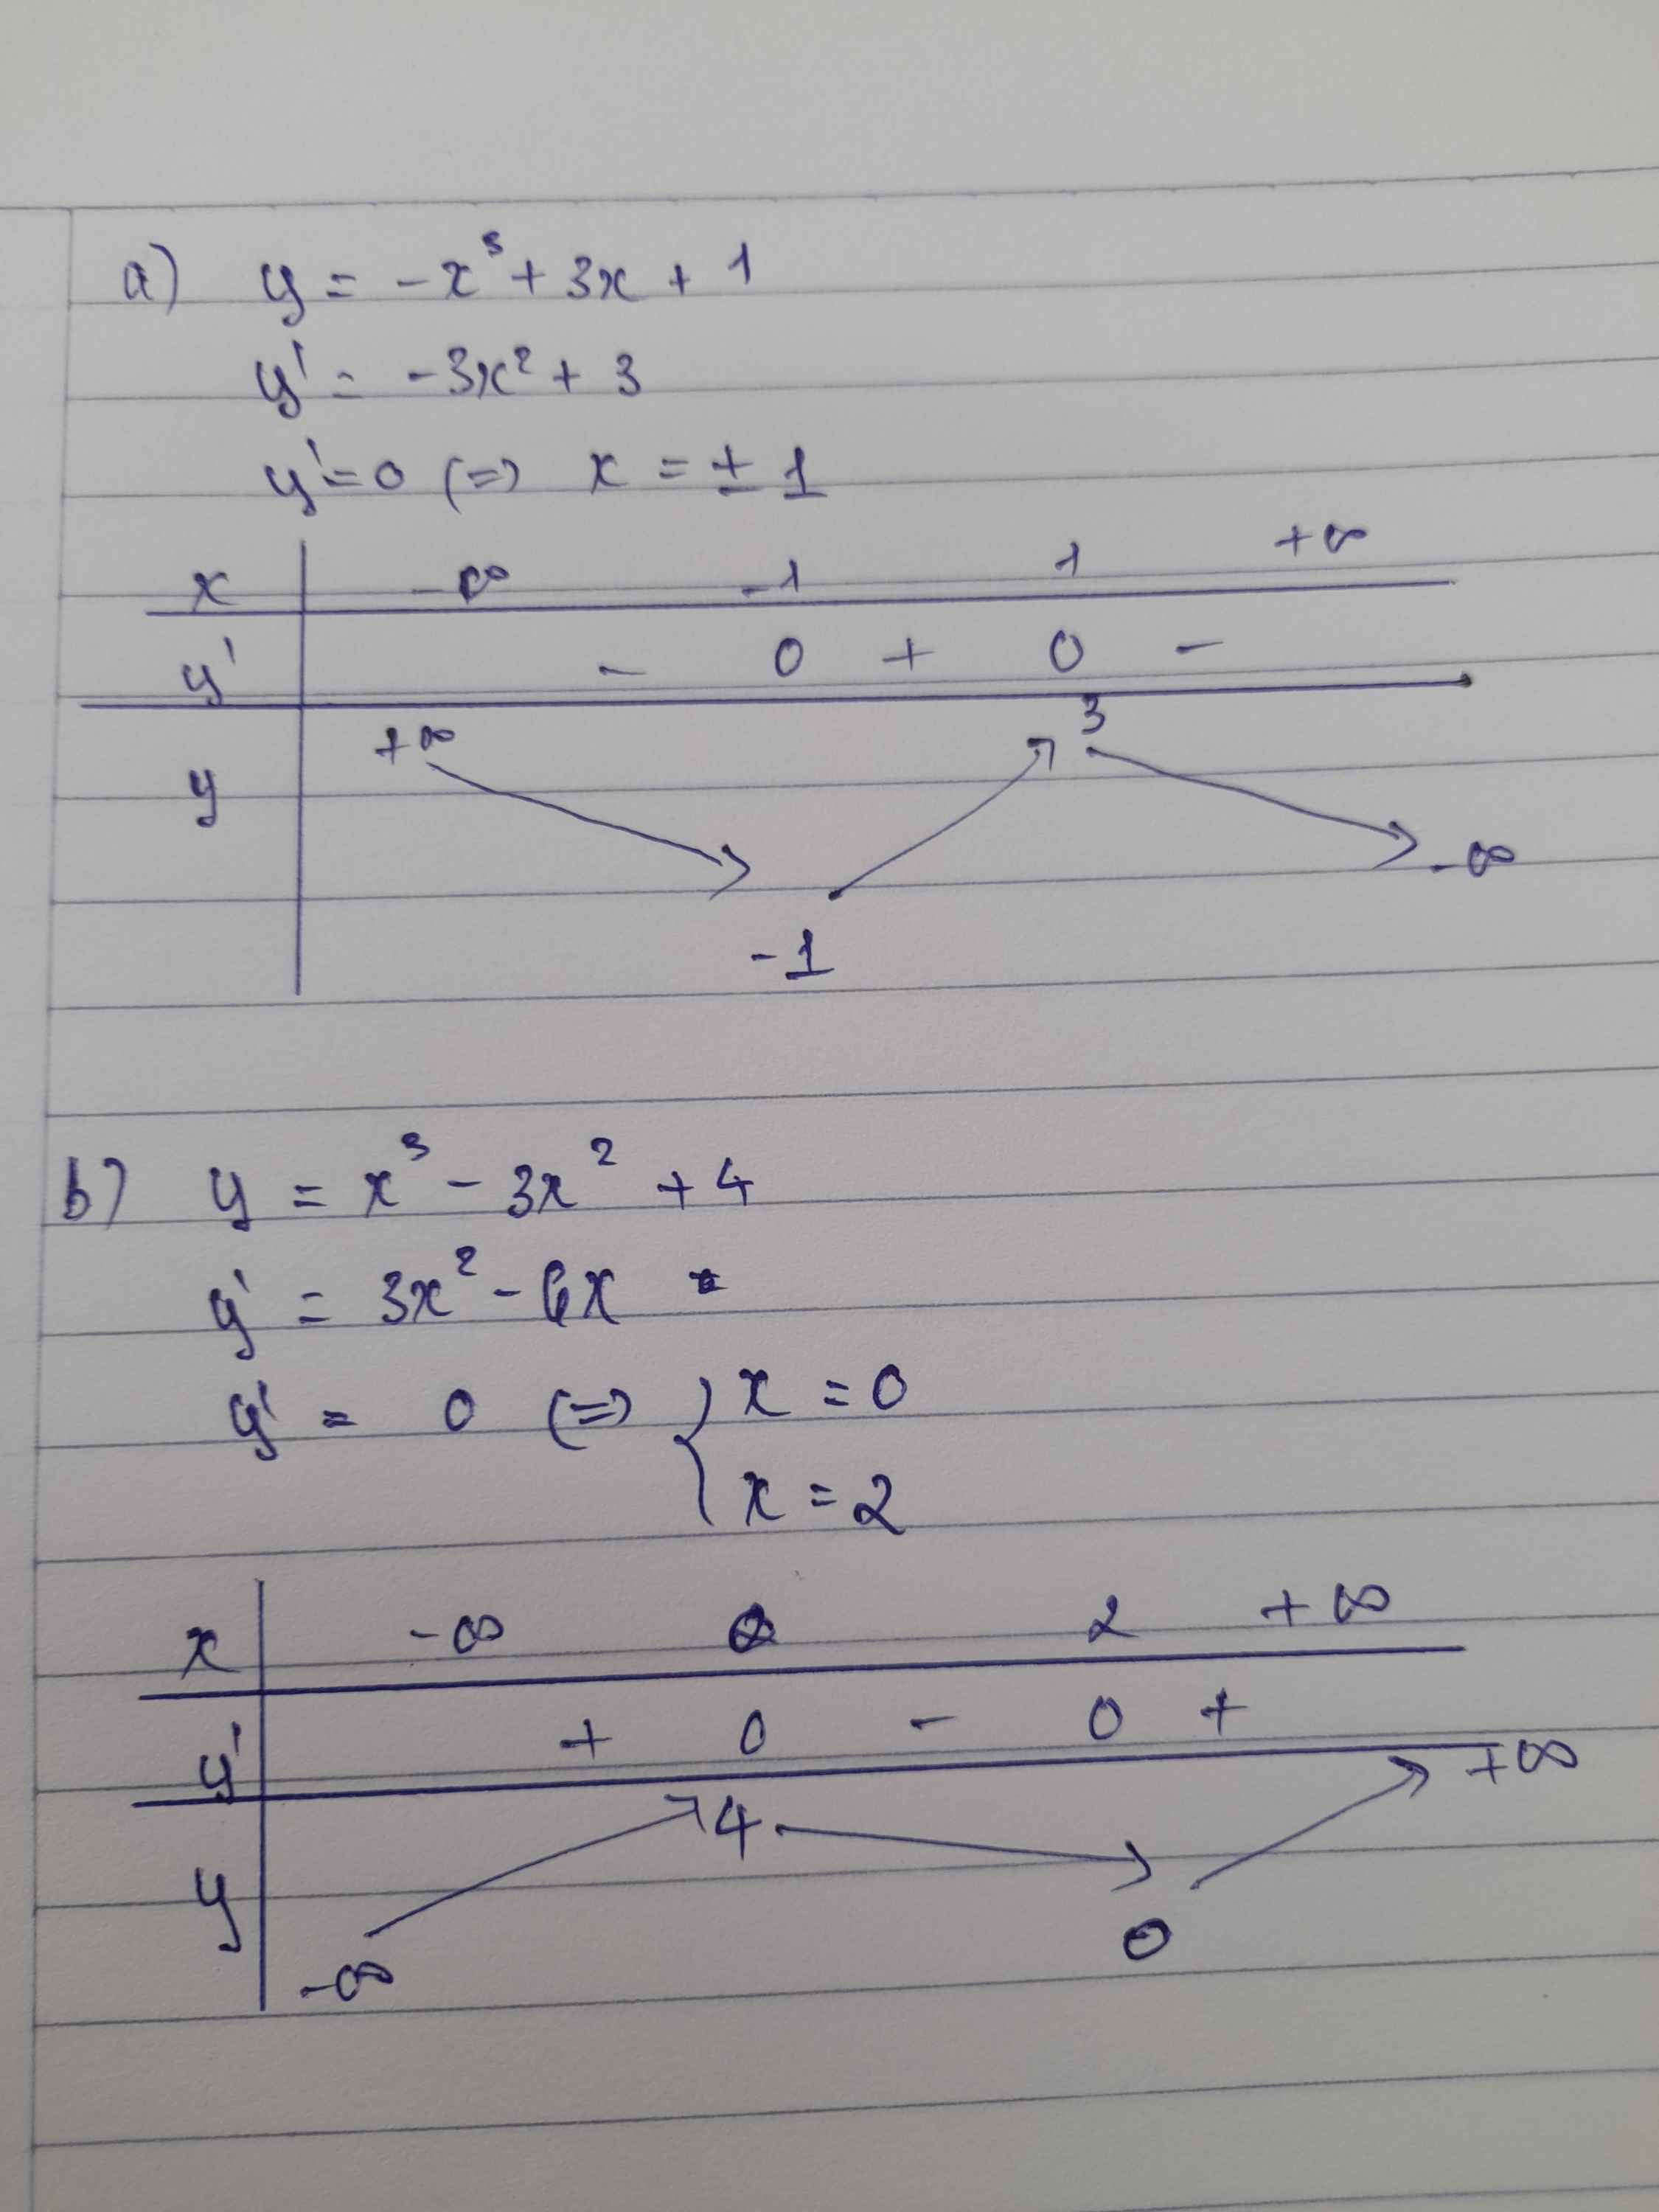 a) y = -x³ + 3x + 1
y' = -3x² + 3
y' = 0 (=) x = ± 1
x -∞ -1 1 +∞
y' - 0 + 0 -
y +∞ -1 3 -∞
b) y = x³ - 3x² + 4
y' = 3x² - 6x
y' = 0 (=) { x = 0
x = 2
x -∞ 0 2 +∞
y' + 0 - 0 +
y -∞ 4 0 +∞